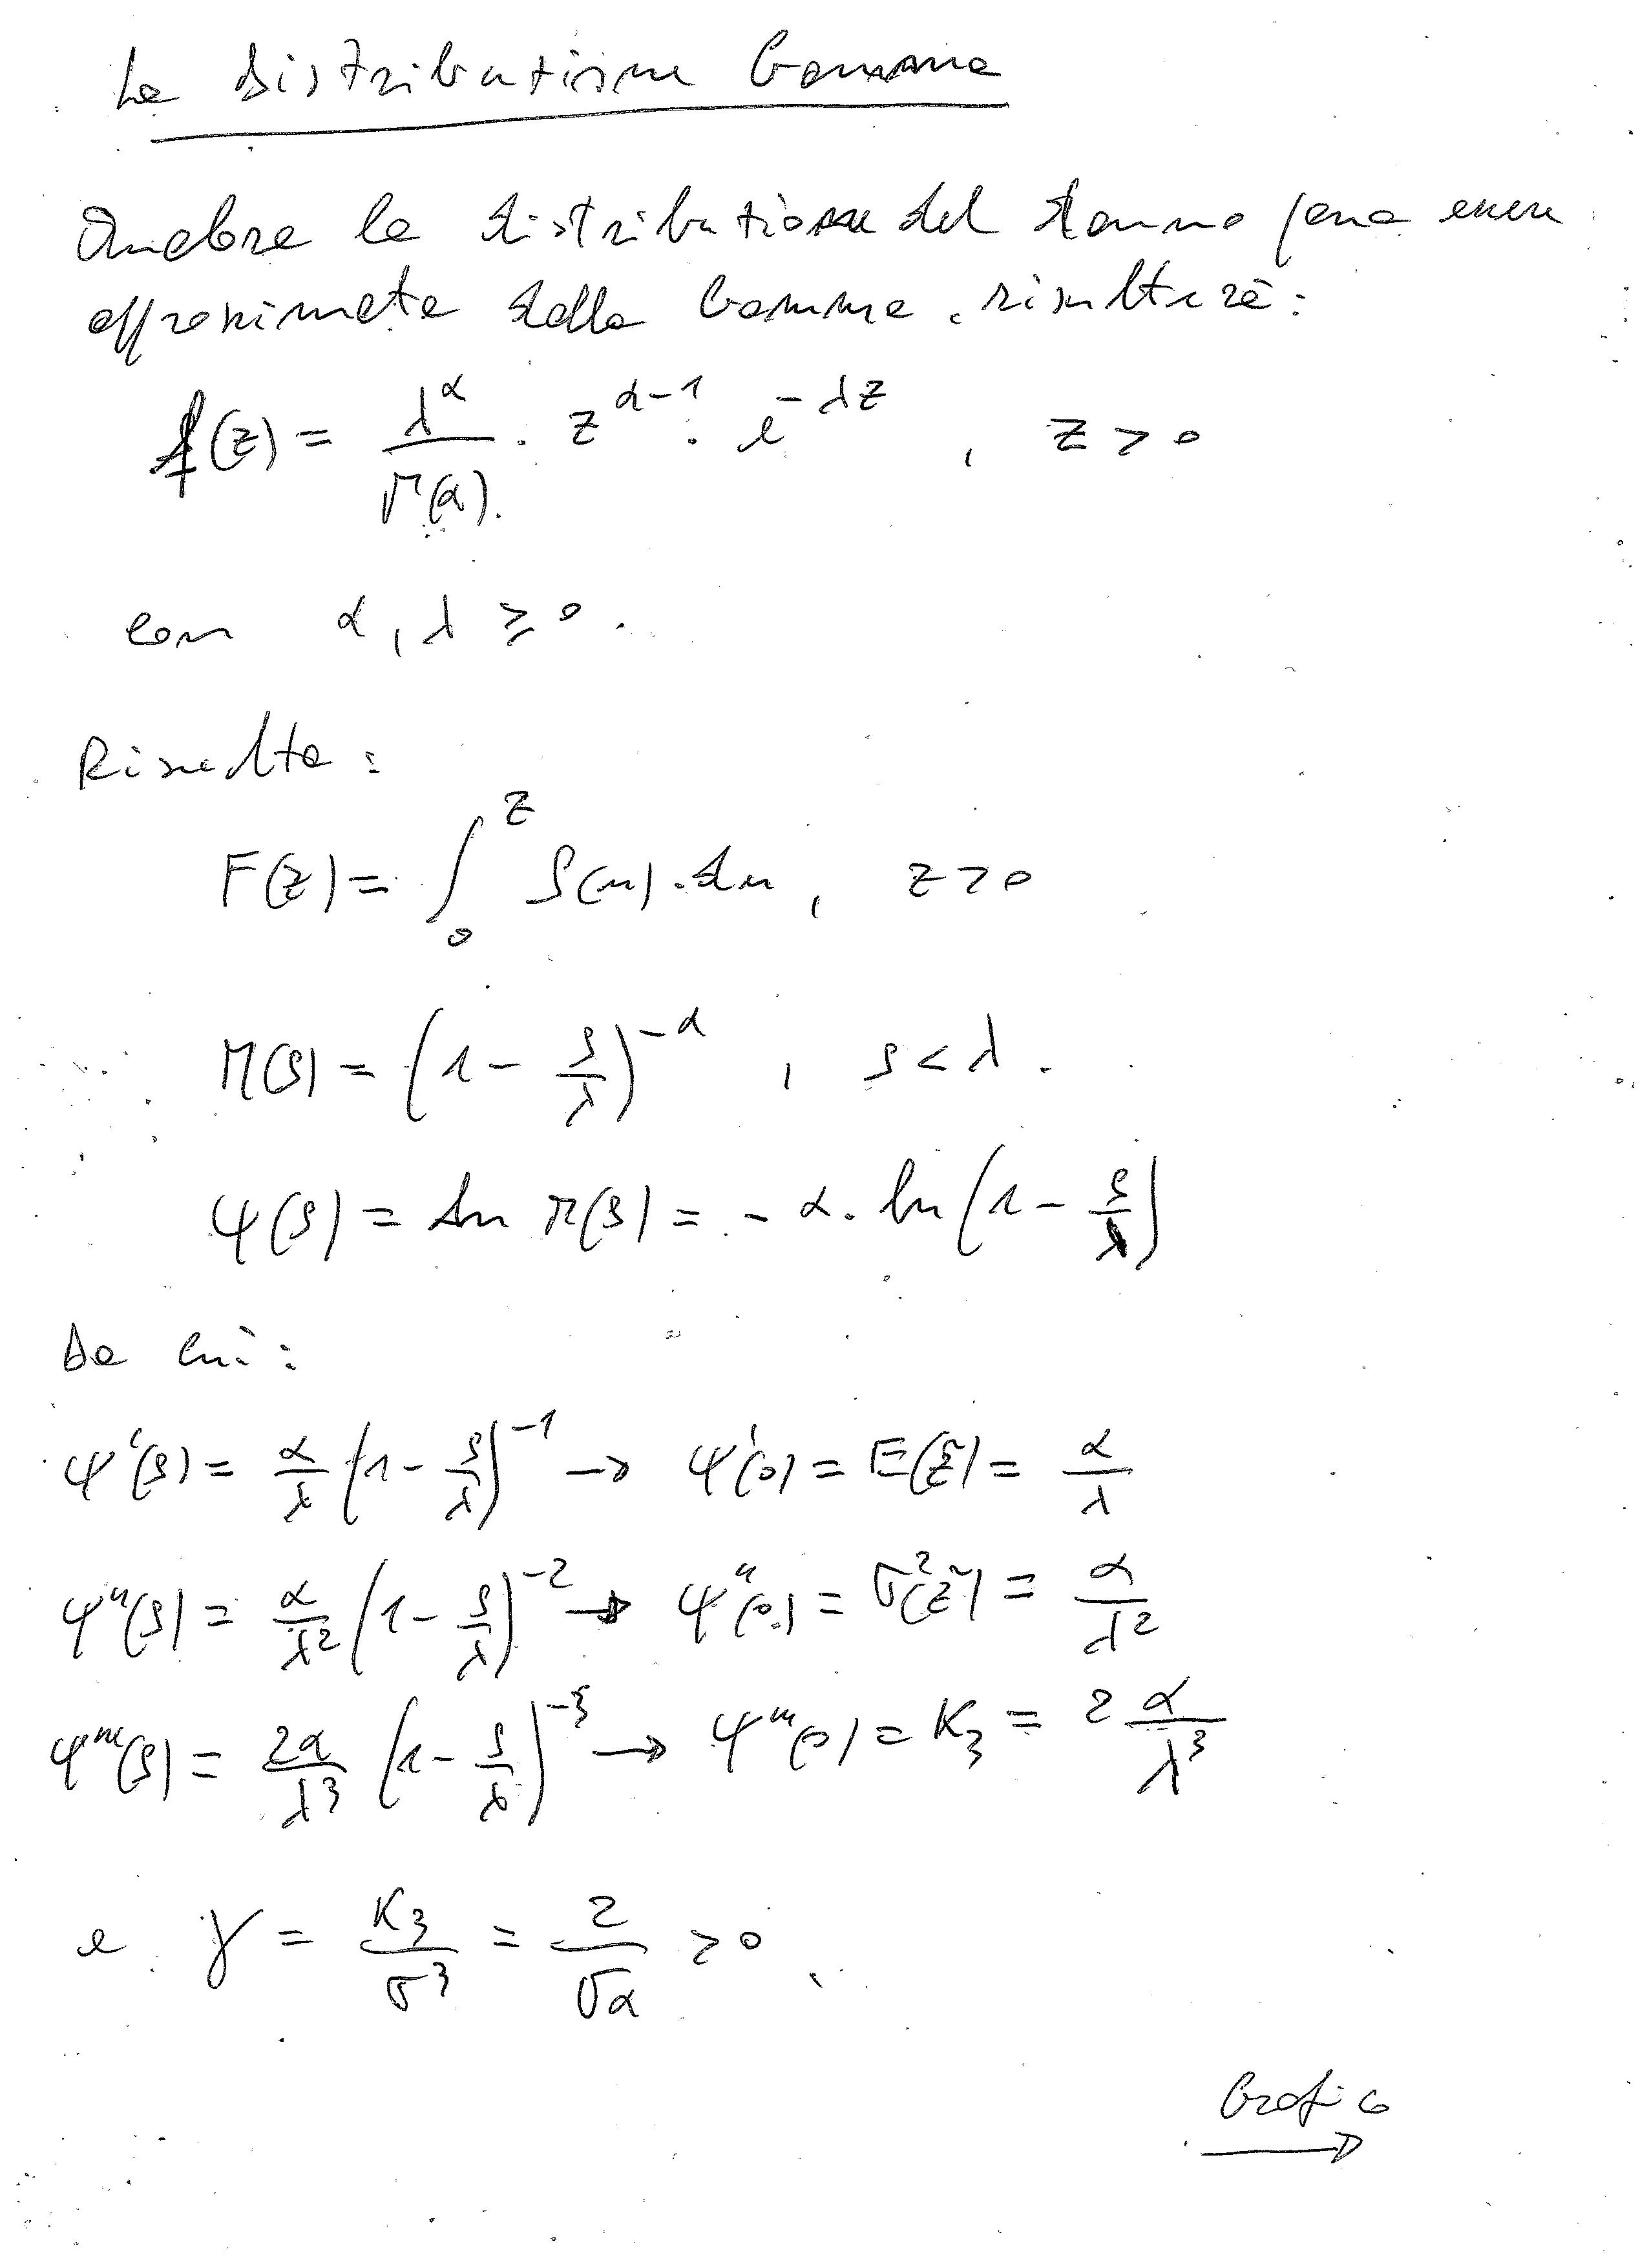 La distribuzione Gamma
Qualora la distribuzione del danno possa essere
approssimata dalla Gamma, risulterà:
f(z) = λ^α / Γ(α) · z^(α-1) · e^(-λz) , z > 0
con α, λ ≥ 0.
Risulta:
F(z) = ∫_0^z f(u)·du, z > 0
M(s) = (1 - s/λ)^(-α) , s < λ.
Ψ(s) = ln M(s) = - α · ln(1 - s/λ)
Da cui:
Ψ'(s) = α/λ (1 - s/λ)^(-1) → Ψ'(0) = E(z̃) = α/λ
Ψ''(s) = α/λ² (1 - s/λ)^(-2) → Ψ''(0) = σ²(z̃) = α/λ²
Ψ'''(s) = 2α/λ³ (1 - s/λ)^(-3) → Ψ'''(0) = K₃ = 2 α/λ³
e γ = K₃/σ³ = 2/√α > 0.
Grafico →